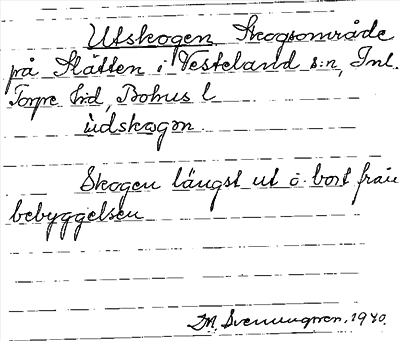 Utskogen Skogsområde
på Slätten i Vesteland s:n, Inl.
Torpe Frd, Bohus l
ùdskogən
Skogen längst ut o. bort från
bebyggelsen
Svenungsson, 1940.